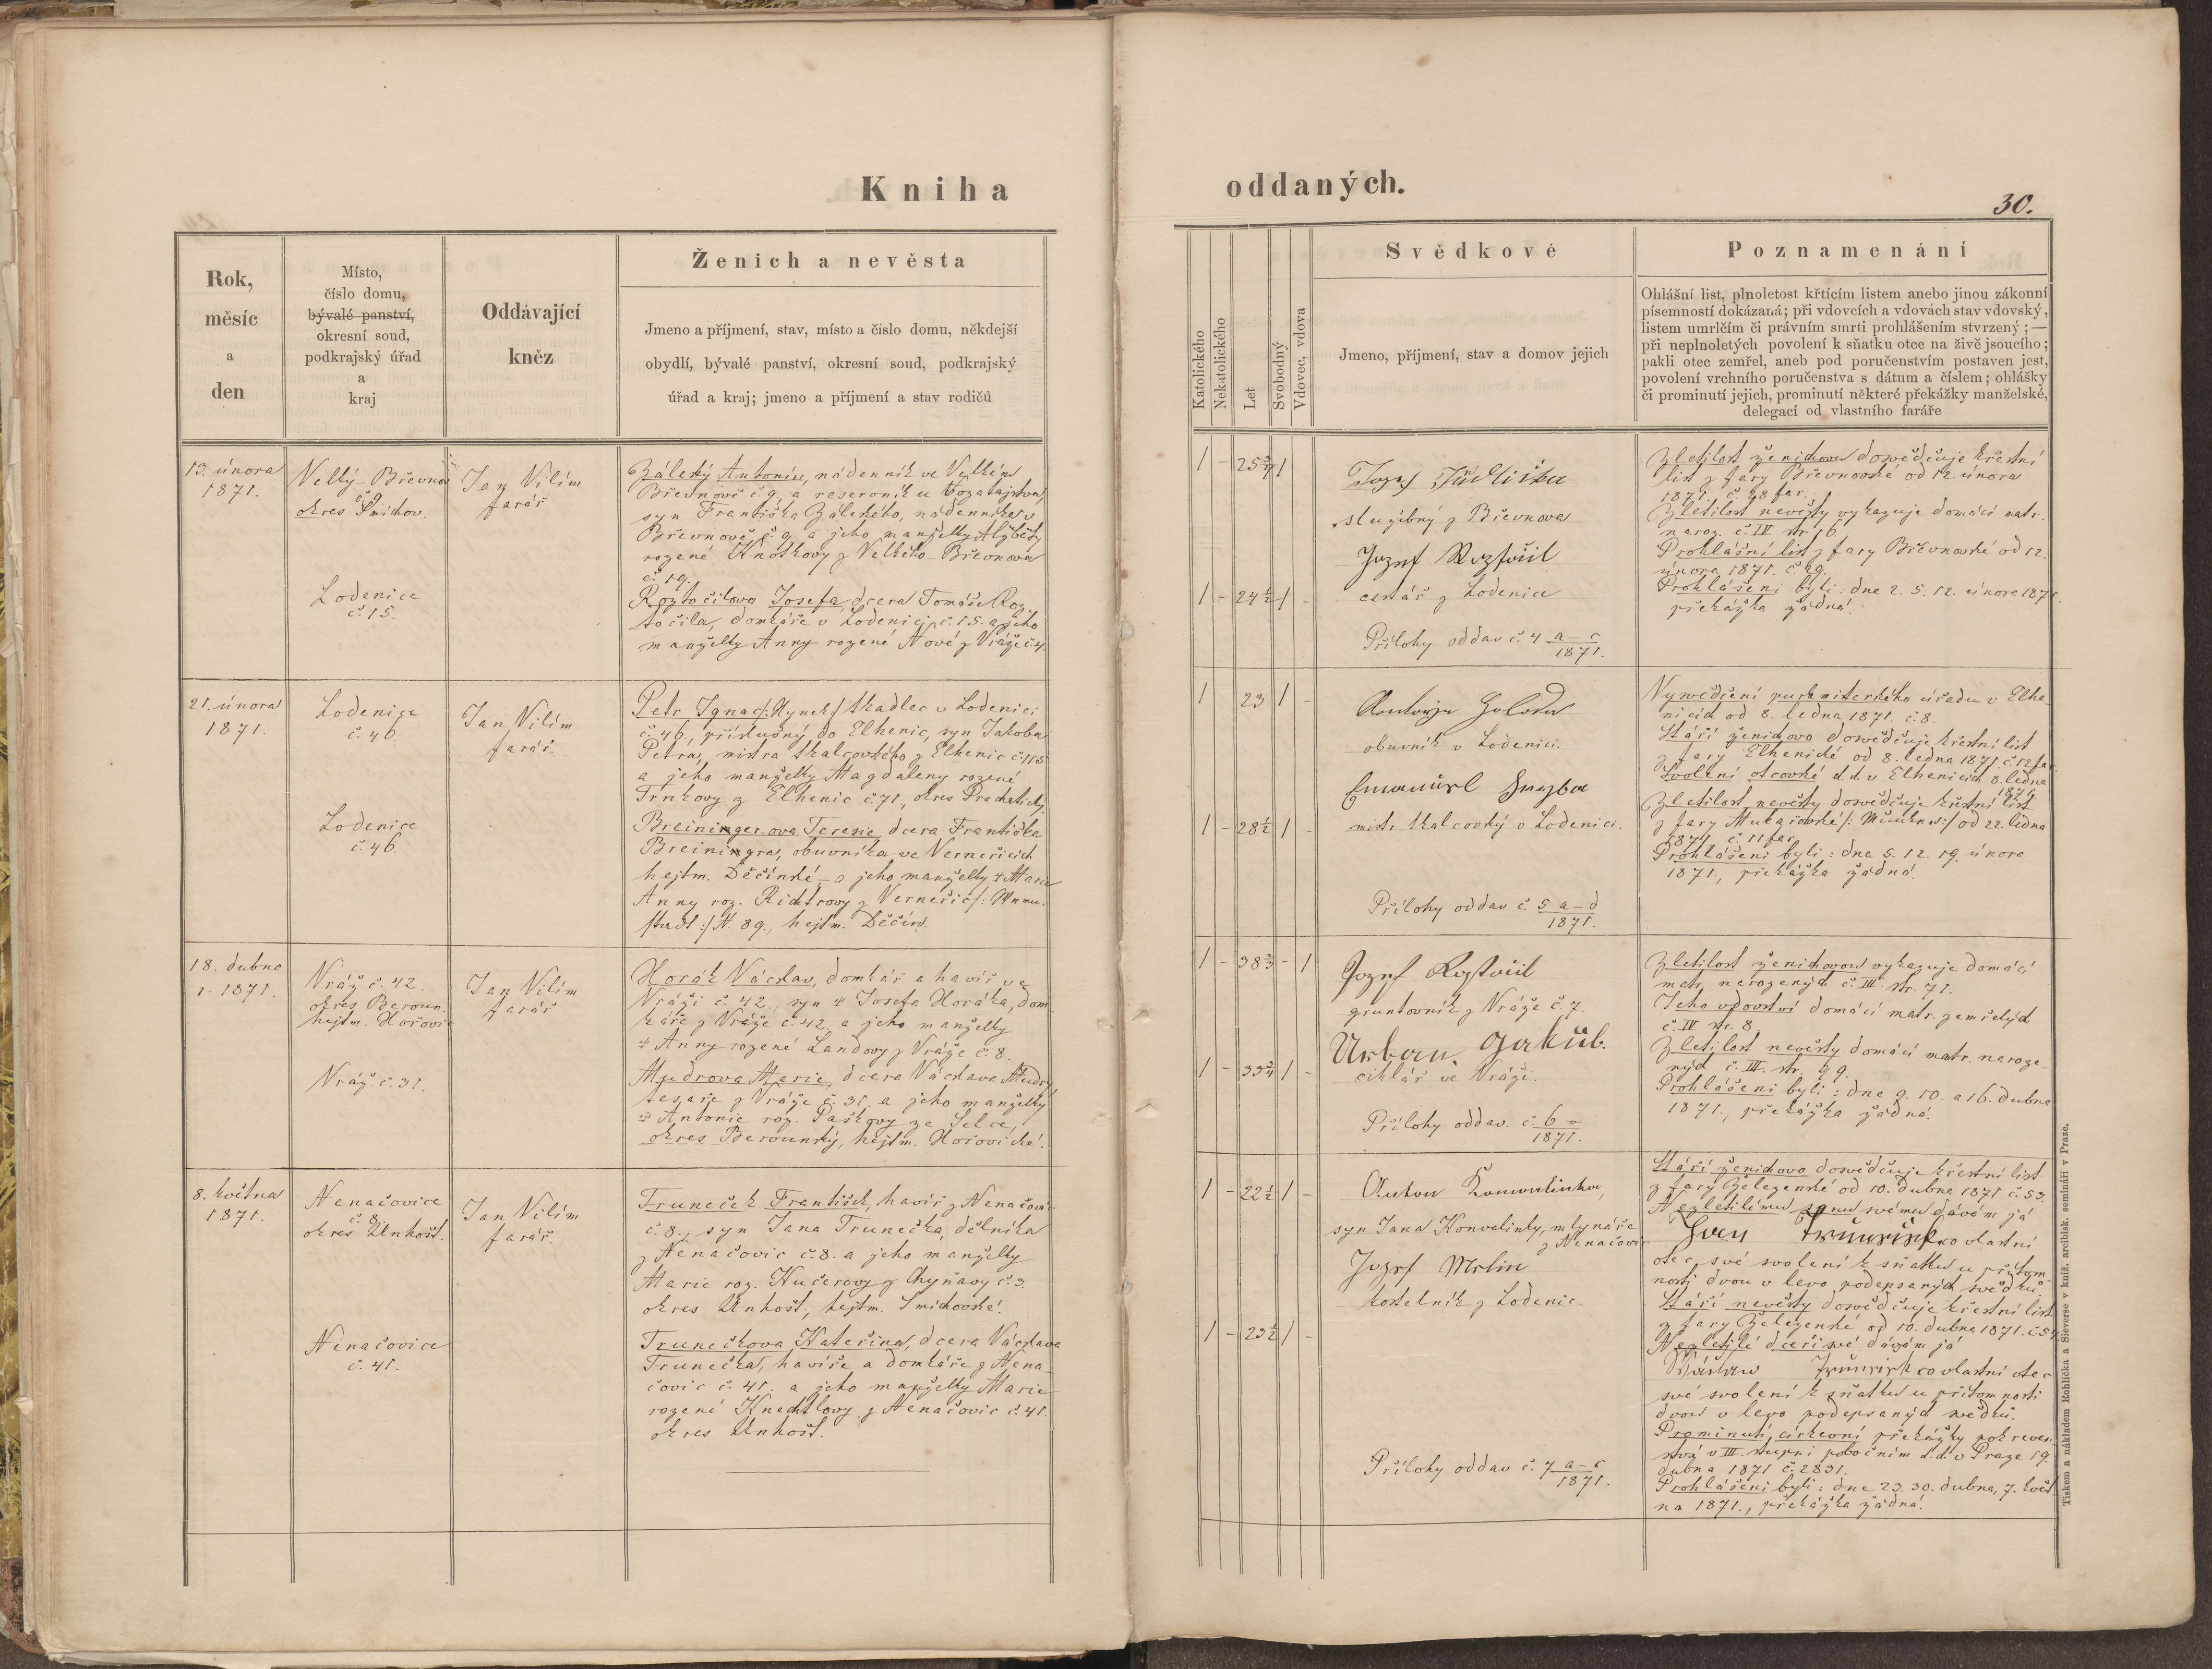 Kniha
Rok,
měsíc
a
den
Místo,
číslo domu,
bývalé panství,
okresní soud,
podkrajský úřad
a
kraj
Oddávající
kněz
Ženich a nevěsta
Jmeno a příjmení, stav, místo a číslo domu, někdejší
obydlí, bývalé panství, okresní soud, podkrajský
úřad a kraj; jmeno a příjmení a stav rodičů
13. února
1871.
Velký-Břevnov
č. 9
okres Smíchov.
Lodenice
č. 15.
Jan Vilím
farář
Zálský Antonín, nádenník ve Velkém
Břevnově č. 9, a reservník u
syn Františka Zálského, nádenníka v
Břevnově č. 9 a jeho manželky Alžběty
rozené Knotkovy z Velkého-Břevnova
č. 19.
Roztočilova Josefa, dcera Tomáše Roz-
točila, domkáře v Lodenici č. 15. a jeho
manželky Anny rozené Nové z Vráže č. 4.
21. února
1871.
Lodenice
č. 46.
Lodenice
č. 46.
Jan Vilím
farář.
Petr Ignac /: Hynek / tkadlec v Lodenici
č. 46., příslušný do Elhenic, syn Jakoba
Petra, mistra tkalcovského z Elhenic č. 115
a jeho manželky Magdaleny rozené
Trnkovy z Elhenic č. 71, okres Prachatický.
Breiningerova Teresie, dcera Františka
Breiningra, obuvníka ve Verneřicích
hejtm. Děčínské a jeho manželky † Marie
Anny roz. Richtrovy z Verneřic /: Wern-
stadt :/ N. 89., hejtm. Děčín.
18. dubna
r. 1871.
Vráž č. 42.
okres Beroun.
hejtm. Hořovic
Vráž č. 31.
Jan Vilím
farář
Horák Václav, domkář a havíř ve
Vráži č. 42., syn † Josefa Horáka, dom-
káře z Vráže č. 42. a jeho manželky
† Anny rozené Landovy z Vráže č. 8.
Mudrova Marie, dcera Václava Mudry
tesaře z Vráže č. 31. a jeho manželky
† Antonie roz. Paškovy ze Selce,
okres Berounský, hejtm. Hořovické.
8. května
1871.
Nenačovice
č. 8
okres Unhošt.
Nenačovice
č. 41.
Jan Vilím
farář.
Truneček František, havíř z Nenačovic
č. 8., syn Jana Trunečka, dělníka
z Nenačovic č. 8. a jeho manželky
Marie roz. Kučerovy z Chyňavy č. 3
okres Unhošt., hejtm. Smíchovské.
Trunečkova Kateřina, dcera Václava
Trunečka, havíře a domkáře z Nena-
čovic č. 41. a jeho manželky Marie
rozené Knechtlovy z Nenačovic č. 41.
okres Unhošt.
oddaných.
30.
Katolického
Nekatolického
Let
Svobodný
Vdovec, vdova
Svědkové
Jmeno, příjmení, stav a domov jejich
Poznamenání
Ohlášní list, plnoletost křtícím listem anebo jinou zákonní
písemností dokázaná; při vdovcích a vdovách stav vdovský,
listem umrlčím či právním smrti prohlášením stvrzený; —
při neplnoletých povolení k sňatku otce na živě jsoucího;
pakli otec zemřel, aneb pod poručenstvím postaven jest,
povolení vrchního poručenstva s dátum a číslem; ohlášky
či prominutí jejich, prominutí některé překážky manželské,
delegací od vlastního faráře
1 - 25 3/4 1
služebný z Břevnova
Josef Roztočil
1 - 24 1/2 1 -
cestář z Lodenice
Přílohy oddav č. 4 a-c
1871.
Zletilost ženichovu dosvědčuje křestní
list z fary Břevnovské od 12. února
1871. č. 28 far.
Zletilost nevěsty vykazuje domácí matr.
naroz. č. IV str. 16.
Prohlášní list z fary Břevnovské od 12.
února 1871. č. 29.
Prohlášeni byli: dne 2. 5. 12. února 1871.
překážka žádná.
1 23 1 -
Antonín Holoda
obuvník v Lodenici.
Emanuel
1 - 28 1/2 1 -
mistr tkalcovský v Lodenici.
Přílohy oddav č. 5 a-d
1871.
Vysvědčení purkmisterského úřadu v Elhe-
nicích od 8. ledna 1871. č. 8.
Stáří ženichovo dosvědčuje křestní list
z fary Elhenické od 8. ledna 1871. č. 12 far.
Svolení otcovské d.d. v Elhenicích 8. ledna
1871
Zletilost nevěsty dosvědčuje křestní list
z fary od 22. ledna
1871 č. 11 far.
Prohlášeni byli: dne 5. 12. 19. února
1871., překážka žádná.
1 - 38 2/3 - 1
Josef Roztočil
gruntovník z Vráže č. 7.
Urban Jakub.
1 - 35 3/4 1 -
cihlář ve Vráži.
Přílohy oddav. č. 6 a
1871.
Zletilost ženichovou vykazuje domácí
matr. narozených č. III. str. 71.
Jeho vdovství domácí matr. zemřelých
č. IV str. 8.
Zletilost nevěsty domácí matr. naroze-
ných č. III. str. 99.
Prohlášeni byli: dne 9. 10. a 16. dubna
1871., překážka žádná.
1 - 22 1/2 1 -
Anton Konvalinka,
syn Jana Konvalinky, mlynáře
z Nenačovic
Josef Merlin
kostelník z Lodenic.
1 - 23 1/2 1 -
Přílohy oddav č. 7 a-c
1871.
Stáří ženichovo dosvědčuje křestní list
z fary Železenské od 10. dubna 1871 č. 53.
Nezletilému synu svému dávám já
Jan Truneček co vlastní
otec, své svolení k sňatku u přítom-
nosti dvou v levo podepsaných svědků.
Stáří nevěsty dosvědčuje křestní list
z fary Železenské od 10. dubna 1871. č. 54.
Nezletilé dceři své dávám já
Václav Truneček co vlastní otec
své svolení k sňatku u přítomnosti
dvou v levo podepsaných svědků.
Prominutí církevní překážky pokreven-
ství v III. stupni pobočním d.d. v Praze 19.
dubna 1871 č. 2831.
Prohlášeni byli: dne 23. 30. dubna, 7. květ-
na 1871., překážka žádná.
Tiskem a nákladem Rohlíčka a Sieverse v kníž. arcibisk. semináři v Praze.